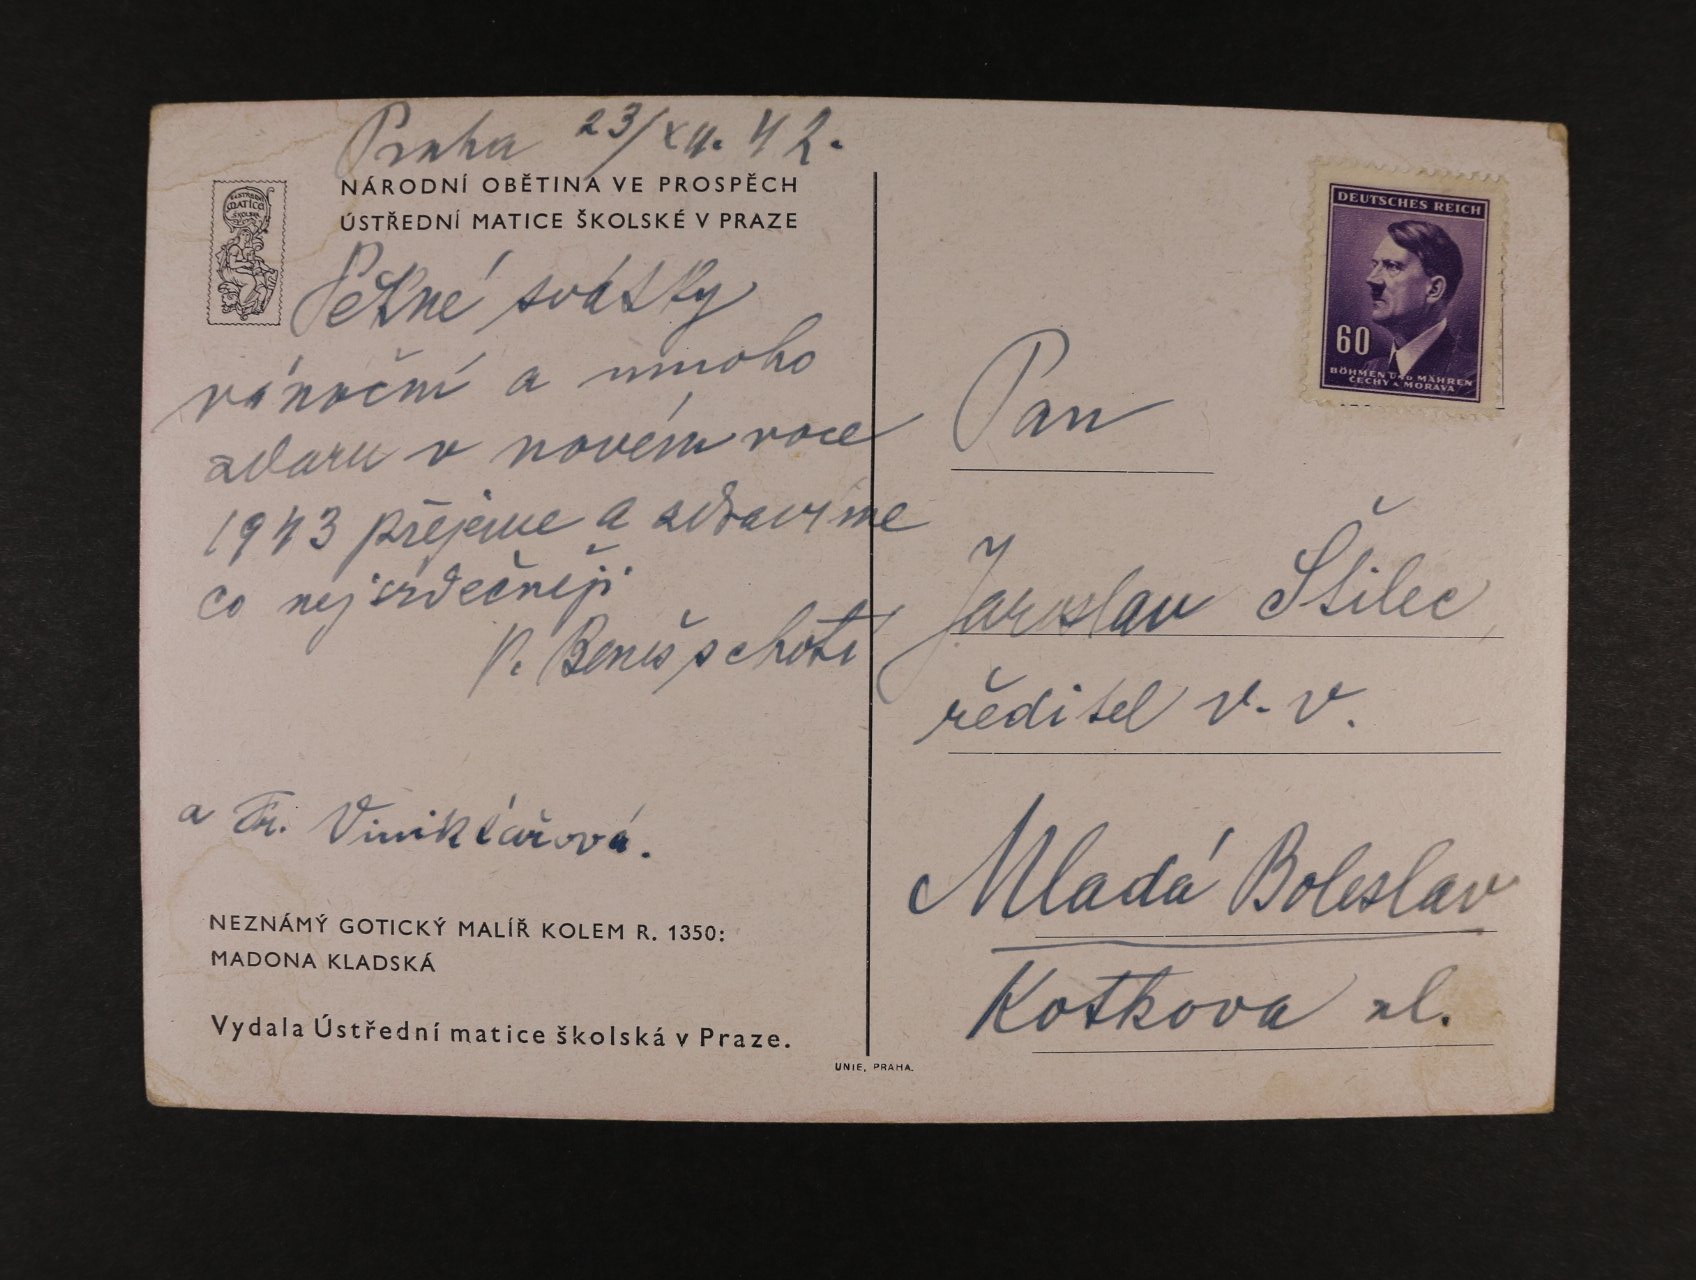 Praha 23/XII. 42.
NÁRODNÍ OBĚTINA VE PROSPĚCH
ÚSTŘEDNÍ MATICE ŠKOLSKÉ V PRAZE
MATICE
Pěkné svátky
vánoční a mnoho
zdaru v novém roce
1943 přejeme a zdravíme
co nejsrdečněji
P. Beneš s chotí
a Fr. Viniklářová.
NEZNÁMÝ GOTICKÝ MALÍŘ KOLEM R. 1350:
MADONA KLADSKÁ
Vydala Ústřední matice školská v Praze.
UNIE, PRAHA.
DEUTSCHES REICH
60
BÖHMEN UND MÄHREN
ČECHY A MORAVA
Pan
Jaroslav Štilec,
ředitel v. v.
Mladá Boleslav
Kotkova ul.